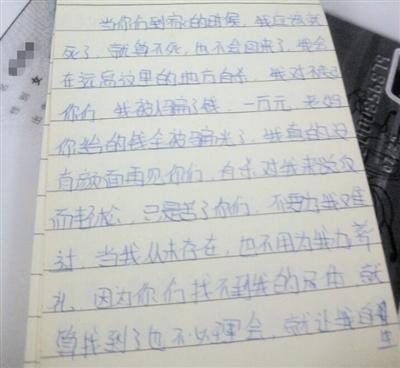 当你们到家的时候，我应该就
死了，就算不死，也不会回来了，我会
在远离这里的地方自杀，我对不起
你们，我被人骗了钱，一万元，老妈
你给的钱全被骗光了，我真的没
有颜面再见你们，自杀对我来说只
而轻松，只是苦了你们，不要为我难
过，当我从未存在，也不用为我办葬
礼，因为你们找不到我的尸体，就
算找到了也不必理会，就让我自
生